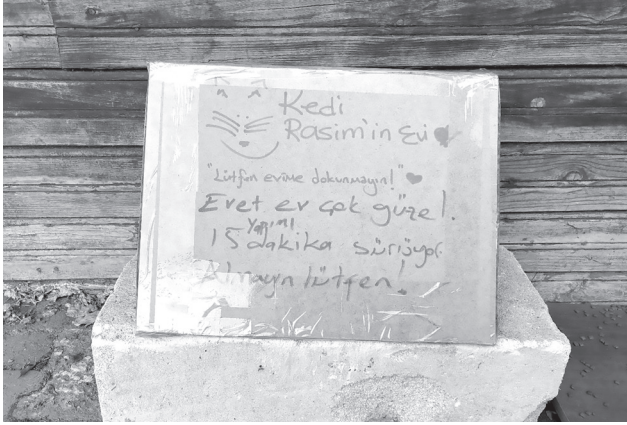 Kedi
Rasim'in Evi
"Lütfen evime dokunmayın!"
Evet ev çok güzel.
yapımı
15 dakika sürüyor.
Almayın lütfen!